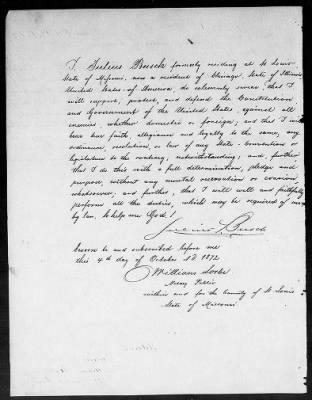 I, Julius Busch formerly residing at St Louis
State of Missouri, now a resident of Chicago, State of Illinois
United States of America, do solemnly swear, that I
will support, protect, and defend the Constitution
and Government of the United States against all
enemies, whether domestic or foreign, and that I will
bear true faith, allegiance and loyalty to the same, any
ordinance, resolution, or law of any State, Convention or
legislature to the contrary, notwithstanding; and, further
that I do this with a full determination, pledge and
purpose, without any mental reservation or evasion,
whatsoever; and further, that I will well and faithfully
perform all the duties, which may be required of me
by law, So help me God!
Julius Busch
Sworn to and subscribed before me
this 4th day of October 1872
William
Notary Public
within and for the County of St Louis
State of Missouri